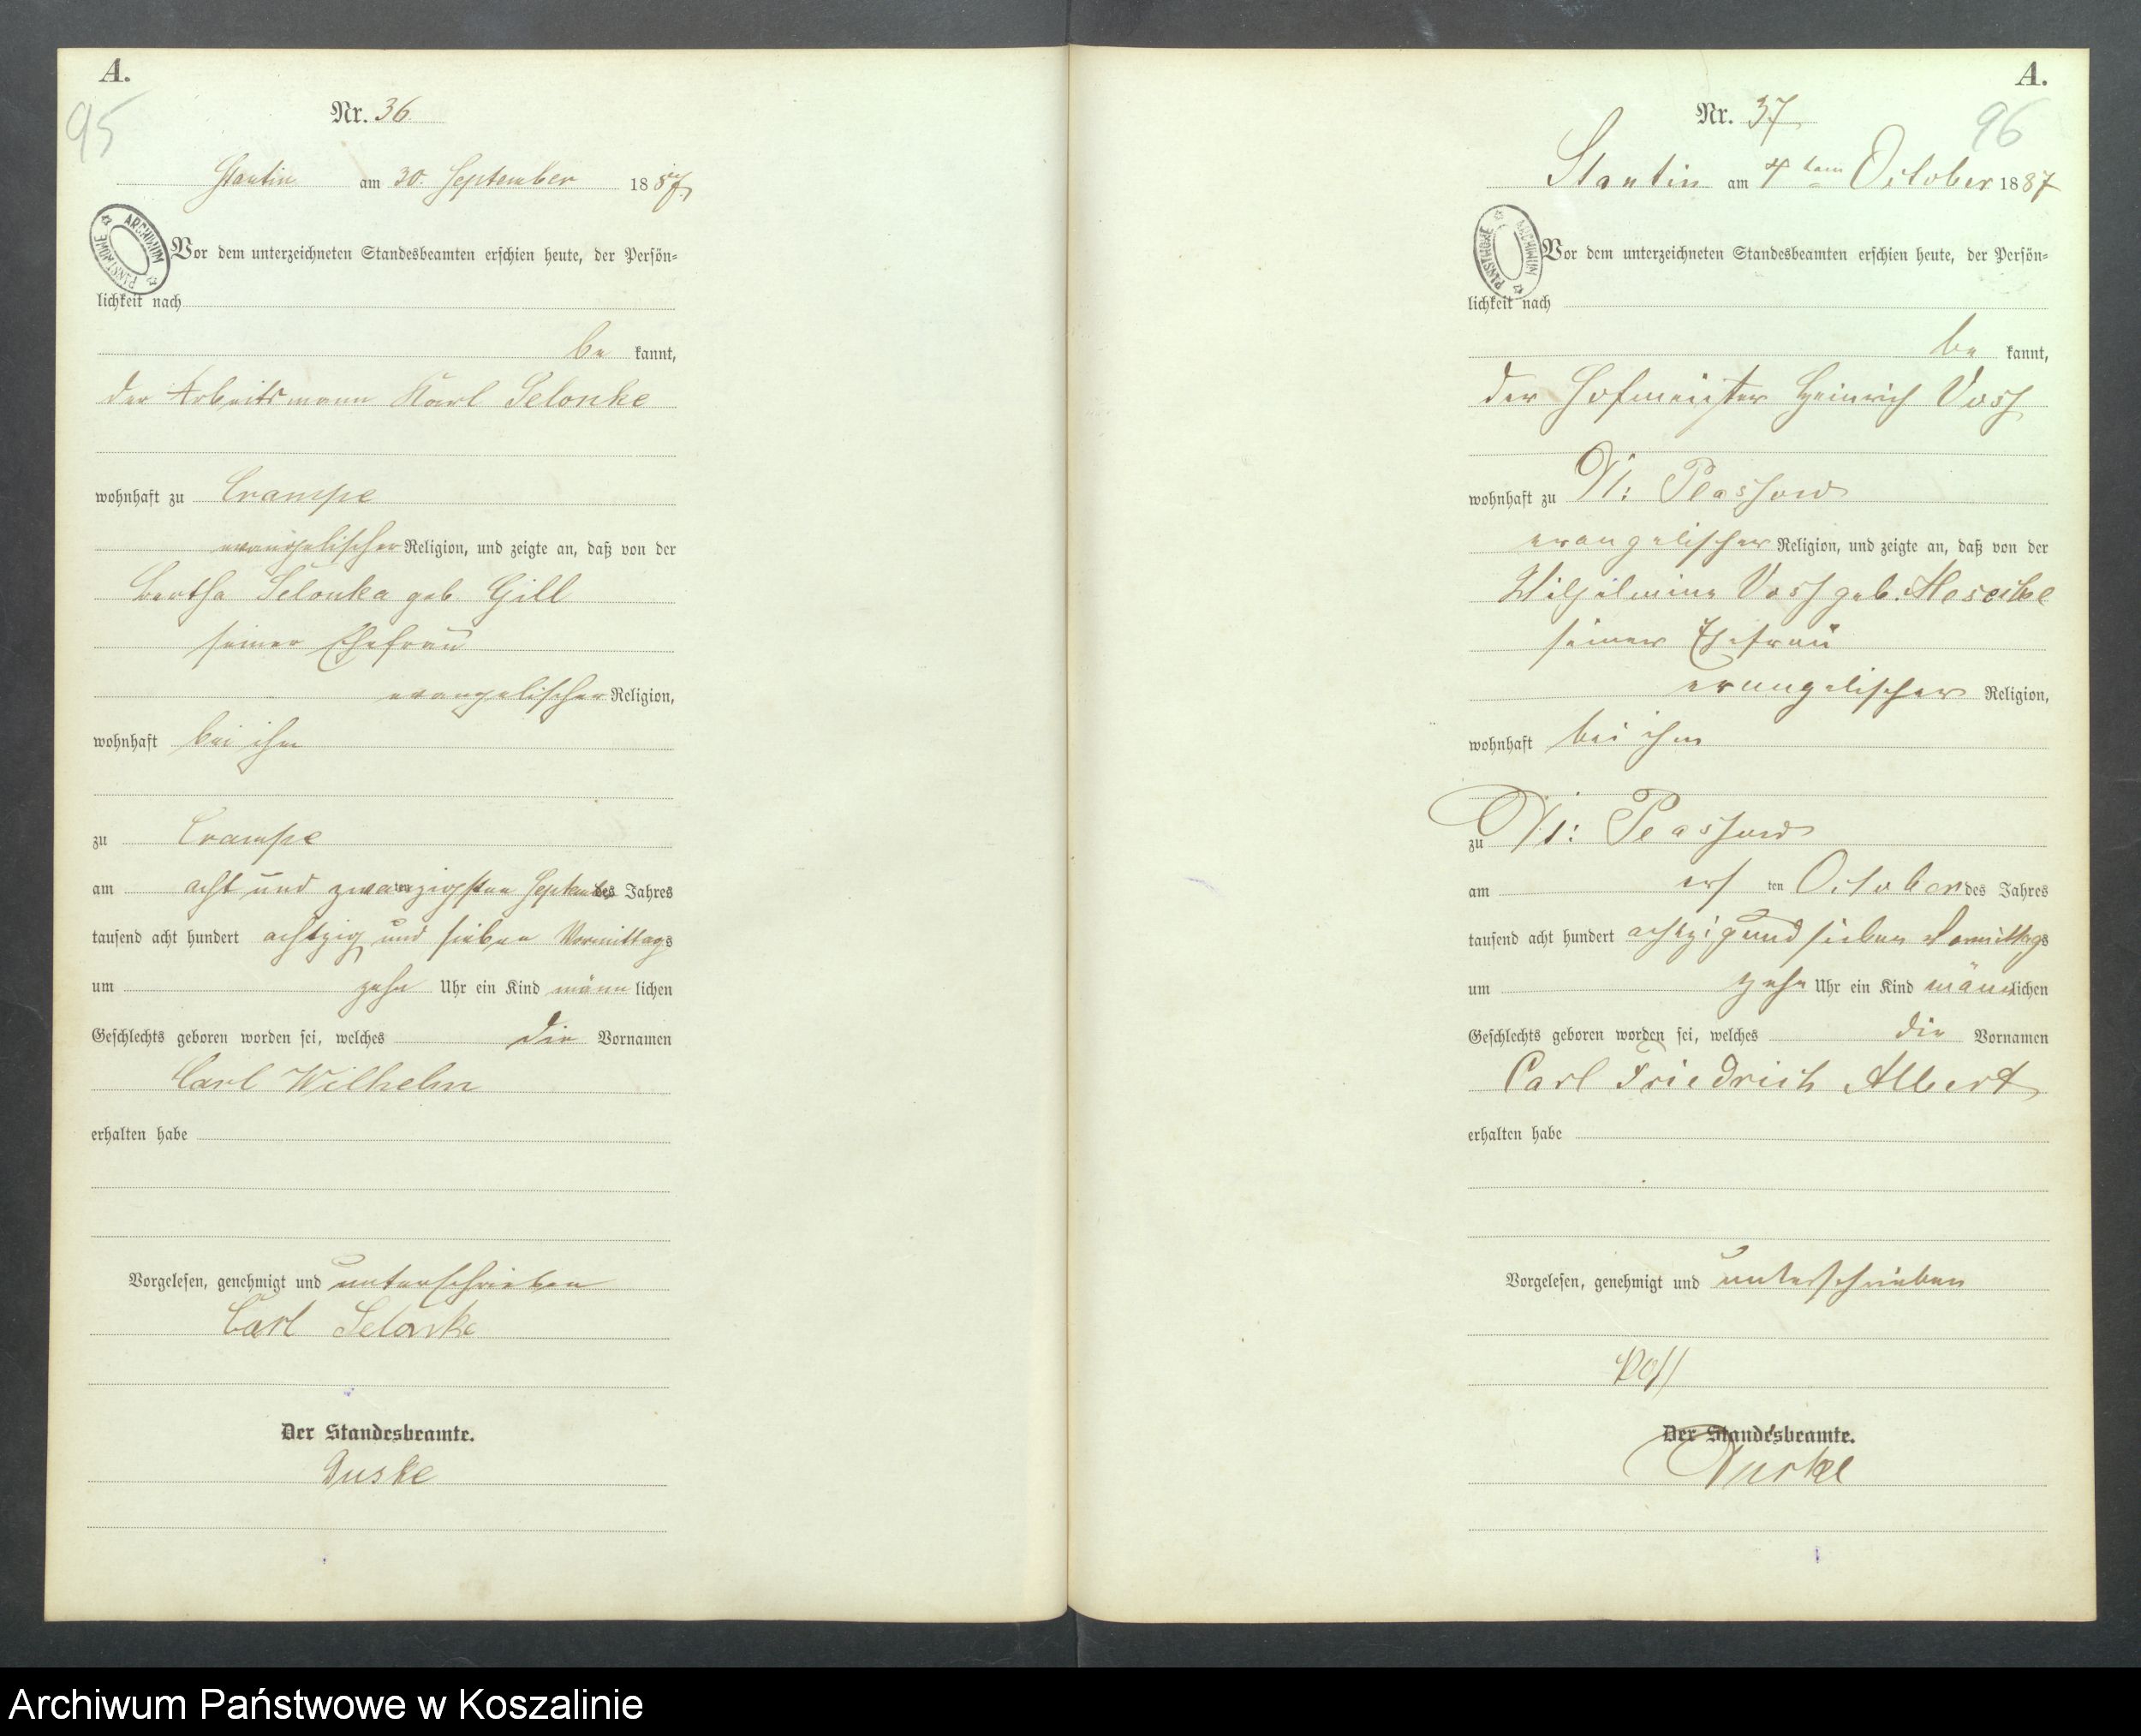 A.
95
Nr. 36.
Stantin am 30. September 1887
ARCHIWUM PAŃSTWOWE
Vor dem unterzeichneten Standesbeamten erschien heute, der Persön=
lichkeit nach
be kannt,
der Arbeitsmann Karl Selonke
wohnhaft zu Crampe
evangelischer Religion, und zeigte an, daß von der
Bertha Selonke geb. Gill
seiner Ehefrau
evangelischer Religion,
wohnhaft bei ihm
zu Crampe
am acht und zwanzigsten September des Jahres
tausend acht hundert achtzig und sieben Vormittags
um zehn Uhr ein Kind männ lichen
Geschlechts geboren worden sei, welches die Vornamen
Carl Wilhelm
erhalten habe
Vorgelesen, genehmigt und unterschrieben
Carl Selonke
Der Standesbeamte.
Duske
A.
96
Nr. 37
Stantin am 4ten October 1887
ARCHIWUM PAŃSTWOWE
Vor dem unterzeichneten Standesbeamten erschien heute, der Persön=
lichkeit nach
be kannt,
der Hofmeister Heinrich Voss
wohnhaft zu N: Plassow
evangelischer Religion, und zeigte an, daß von der
Wilhelmine Voss geb.
seiner Ehefrau
evangelischer Religion,
wohnhaft bei ihm
zu N: Plassow
am ersten October des Jahres
tausend acht hundert achtzig und sieben Vormittags
um zehn Uhr ein Kind männlichen
Geschlechts geboren worden sei, welches die Vornamen
Carl Friedrich Albert
erhalten habe
Vorgelesen, genehmigt und unterschrieben
Voss
Der Standesbeamte.
Duske
Archiwum Państwowe w Koszalinie